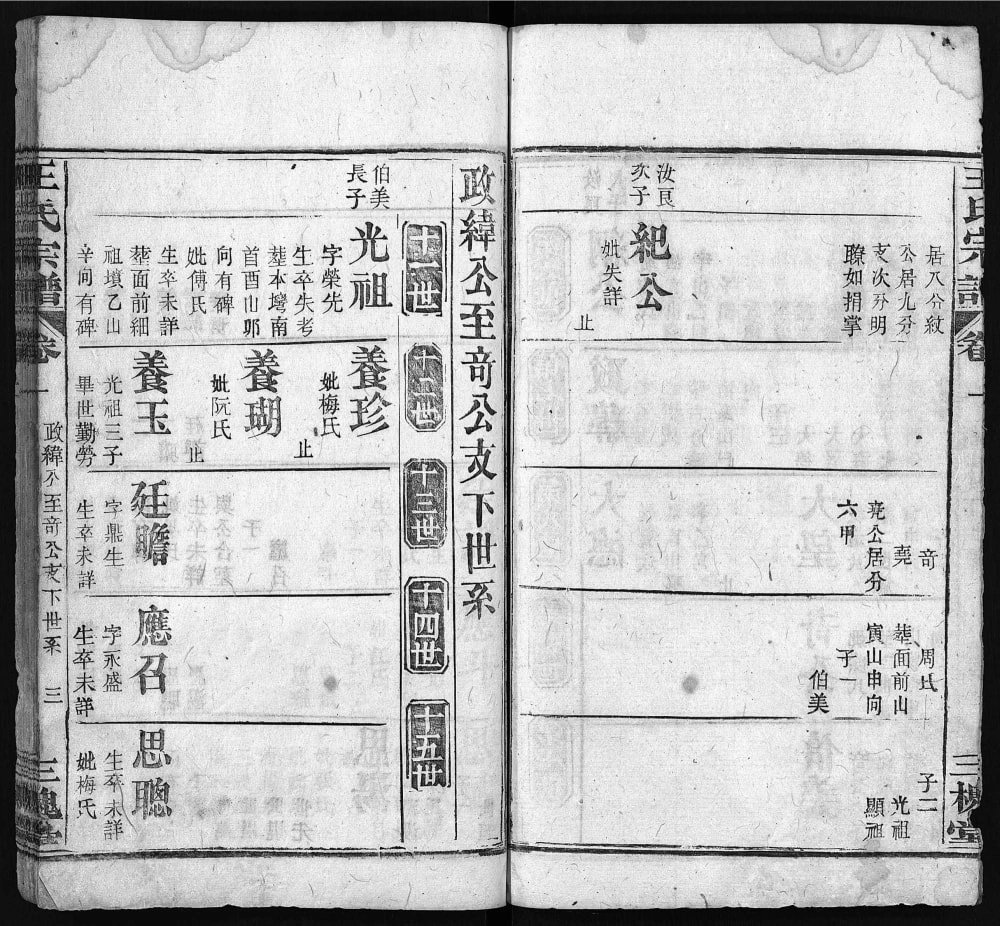 王氏宗譜
卷一
三槐堂
居八分紋
公居九分
支次分明
瞭如捐掌
奇
堯
堯公居分
六甲
周氏
塟面前山
寅山申向
子一
伯美
子二
光祖
顯祖
汝艮
次子
紀公
妣失詳
止
政緯公至奇公支下世系
十一世
十二世
十三世
十四世
十五世
伯美
長子
光祖
字榮先
生卒失考
塟本塆南
首酉山卯
向有碑
妣傅氏
生卒未詳
塟面前細
祖墳乙山
辛向有碑
養珍
妣梅氏
止
養瑚
妣阮氏
止
養玉
光祖三子
畢世勤勞
廷瞻
字鼎生
生卒未詳
應召
字永盛
生卒未詳
思聰
生卒未詳
妣梅氏
王氏宗譜
卷一
政緯公至奇公支下世系
三
三槐堂